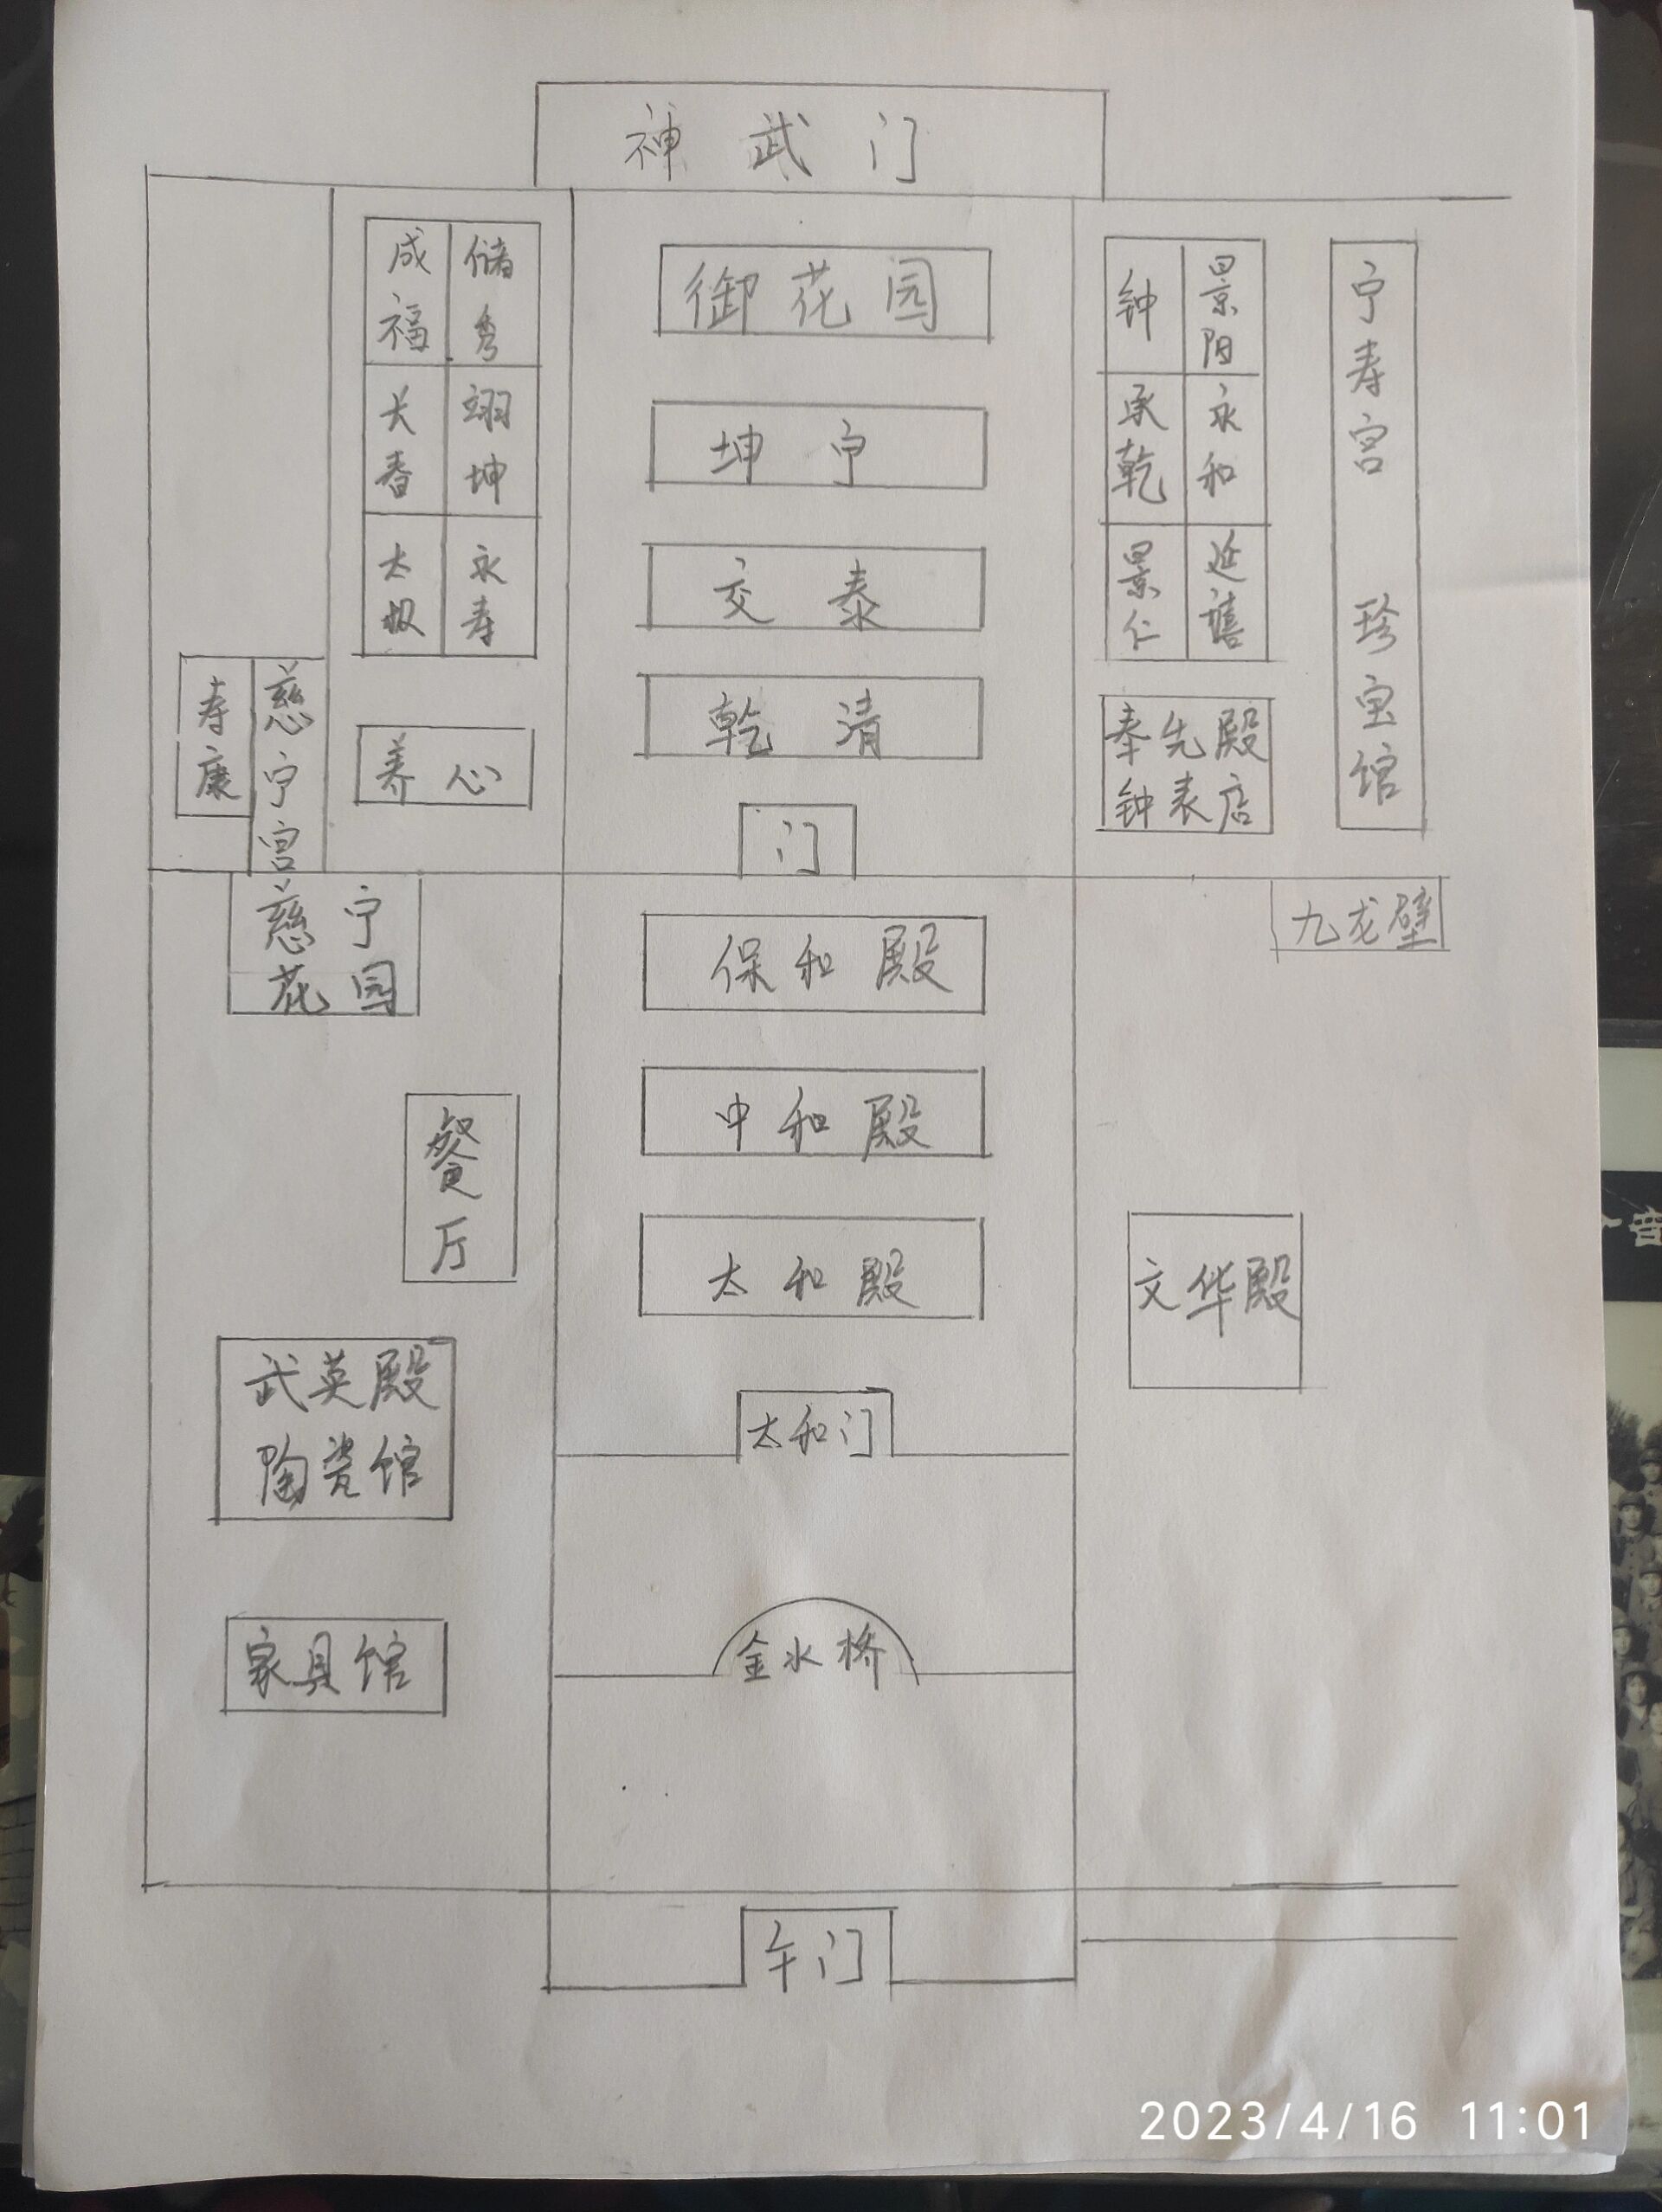 神武门
成福
储秀
长春
翊坤
太极
永寿
御花园
坤宁
交泰
乾清
门
钟
景阳
承乾
永和
景仁
延禧
奉先殿
钟表店
宁寿宫 珍宝馆
寿康
慈宁宫
养心
慈宁
花园
九龙壁
保和殿
中和殿
太和殿
餐厅
文华殿
武英殿
陶瓷馆
太和门
家具馆
金水桥
午门
2023/4/16 11:01